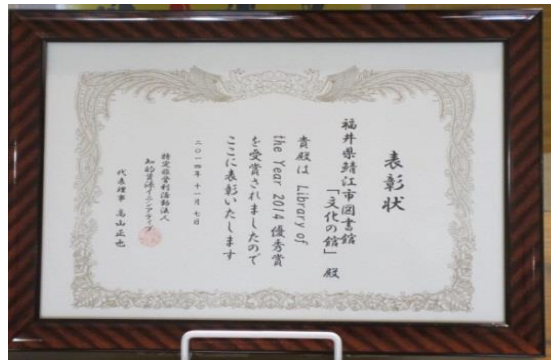 表彰状
福井県鯖江市図書館
「文化の館」 殿
貴殿は Library of
the Year 2014 優秀賞
を受賞されましたので
ここに表彰いたします
二〇一四年十一月七日
特定非営利活動法人
知的資源イニシアティブ
代表理事 高山正也